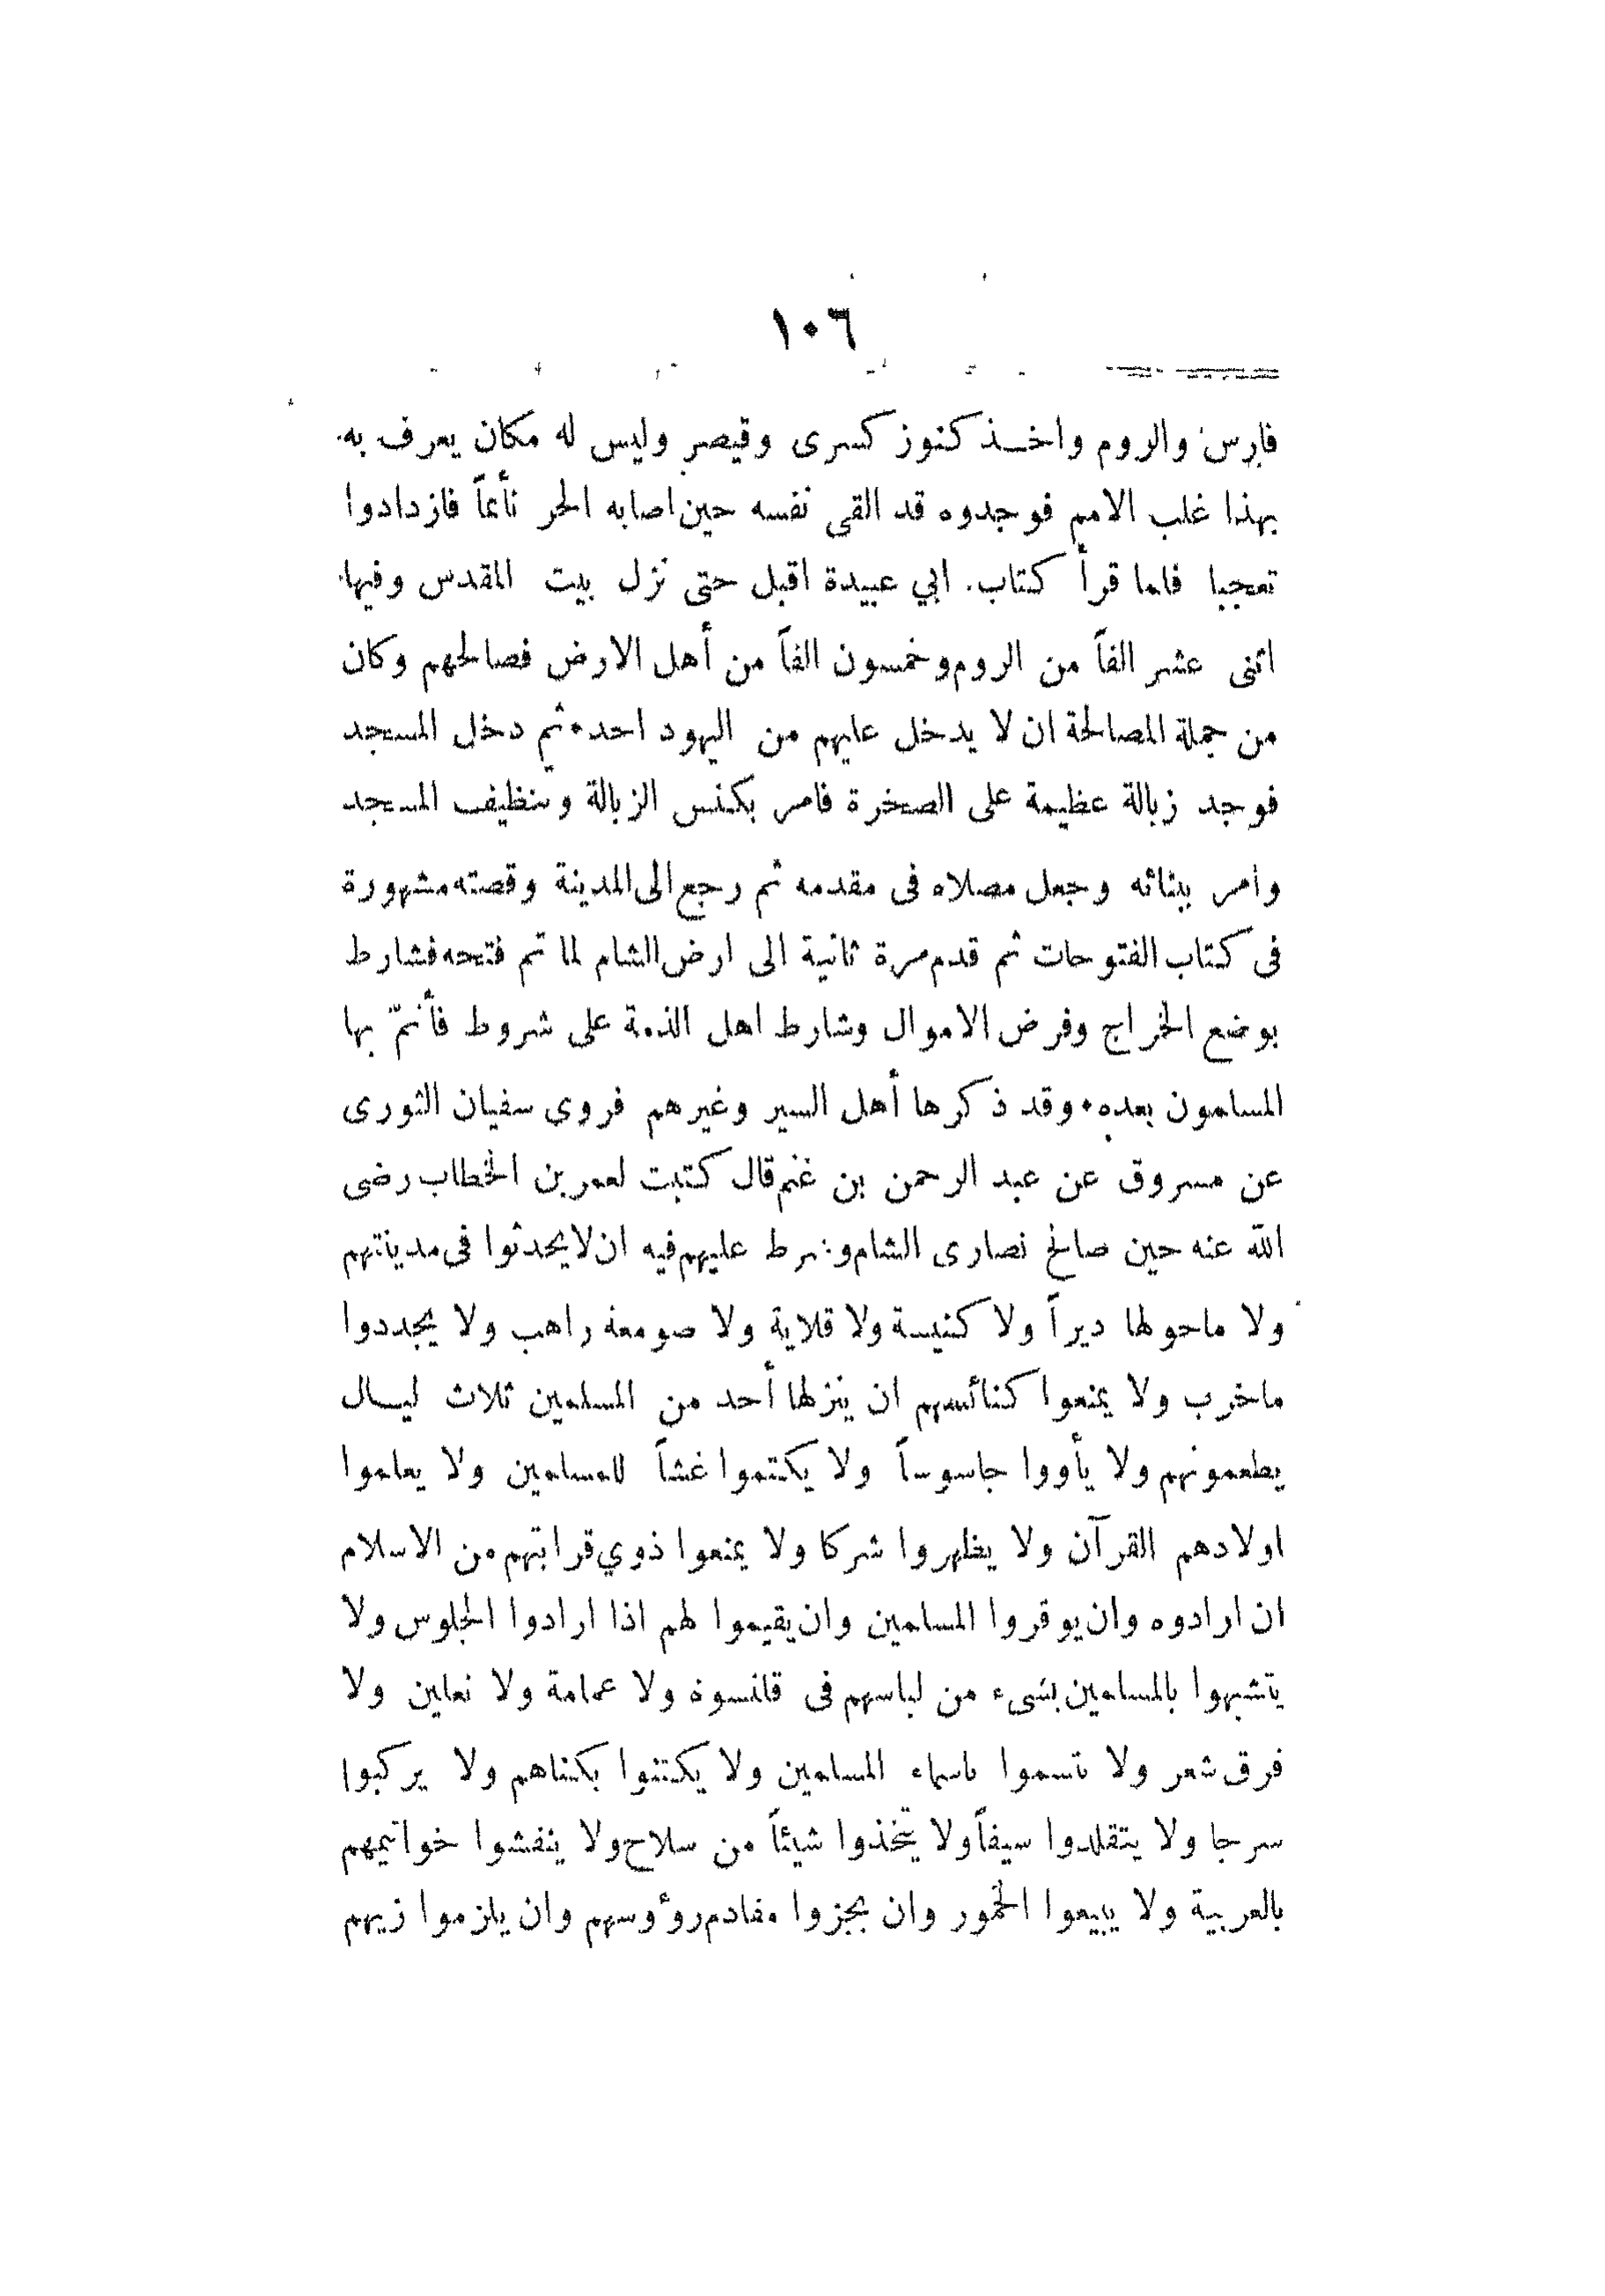 ١٠٦
فارس والروم واخــذ كنوز كسرى وقيصر وليس له مكان يعرف به
بهذا غلب الامم فوجدوه قد القى نفسه حين اصابه الحر نأئماً فازدادوا
تعجبا فلما قرأ كتاب ابي عبيدة اقبل حتى نزل بيت المقدس وفيها
اثنى عشر الفاً من الروم وخمسون الفاً من أهل الارض فصالحهم وكان
من جملة المصالحة ان لا يدخل عليهم من اليهود احد٠ ثم دخل المسجد
فوجد زبالة عظيمة على الصخرة فامر بكنس الزبالة وتنظيف المسجد
وامر ببنائه وجعل مصلاه فى مقدمه ثم رجع الى المدينة وقصته مشهورة
فى كتاب الفتوحات ثم قدم مرة ثانية الى ارض الشام لما تم فتحه فشارط
بوضع الخراج وفرض الاموال وشارط اهل الذمة على شروط فأتمّ بها
المسلمون بعده٠ وقد ذكرها أهل السير وغيرهم فروى سفيان الثورى
عن مسروق عن عبد الرحمن بن غنم قال كتبت لعمر بن الخطاب رضى
الله عنه حين صالح نصارى الشام وشرط عليهم فيه ان لا يحدثوا فى مدينتهم
ولا ماحولها ديراً ولا كنيسة ولا قلاية ولا صومعة راهب ولا يجددوا
ماخرب ولا يمنعوا كنائسهم ان ينزلها أحد من المسلمين ثلاث ليــال
يطعمونهم ولا يأووا جاسوساً ولا يكتموا غشاً للمسلمين ولا يعلموا
اولادهم القرآن ولا يظهروا شركا ولا يمنعوا ذوي قرابتهم من الاسلام
ان ارادوه وان يوقروا المسلمين وان يقيموا لهم اذا ارادوا الجلوس ولا
يتشبهوا بالمسلمين بشىء من لباسهم فى قلنسوة ولا عمامة ولا نعلين ولا
فرق شعر ولا يتسموا باسماء المسلمين ولا يكتنوا بكناهم ولا يركبوا
سرجا ولا يتقلدوا سيفاً ولا يتخذوا شيئاً من سلاح ولا ينقشوا خواتيمهم
بالعربية ولا يبيعوا الخمور وان يجزوا مقادم روٴوسهم وان يلزموا زيهم